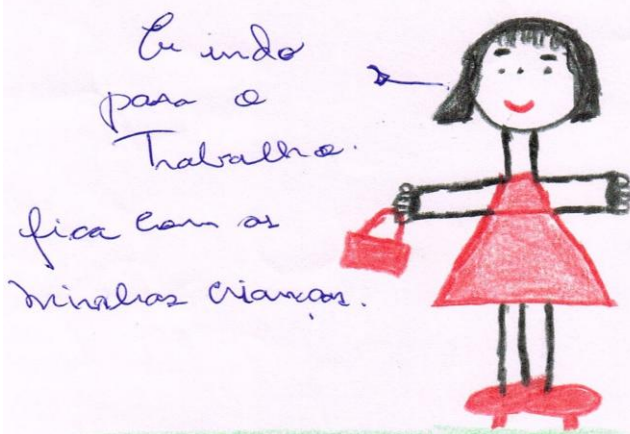 Eu indo
para o
Trabalho.
fica com as
minhas crianças.